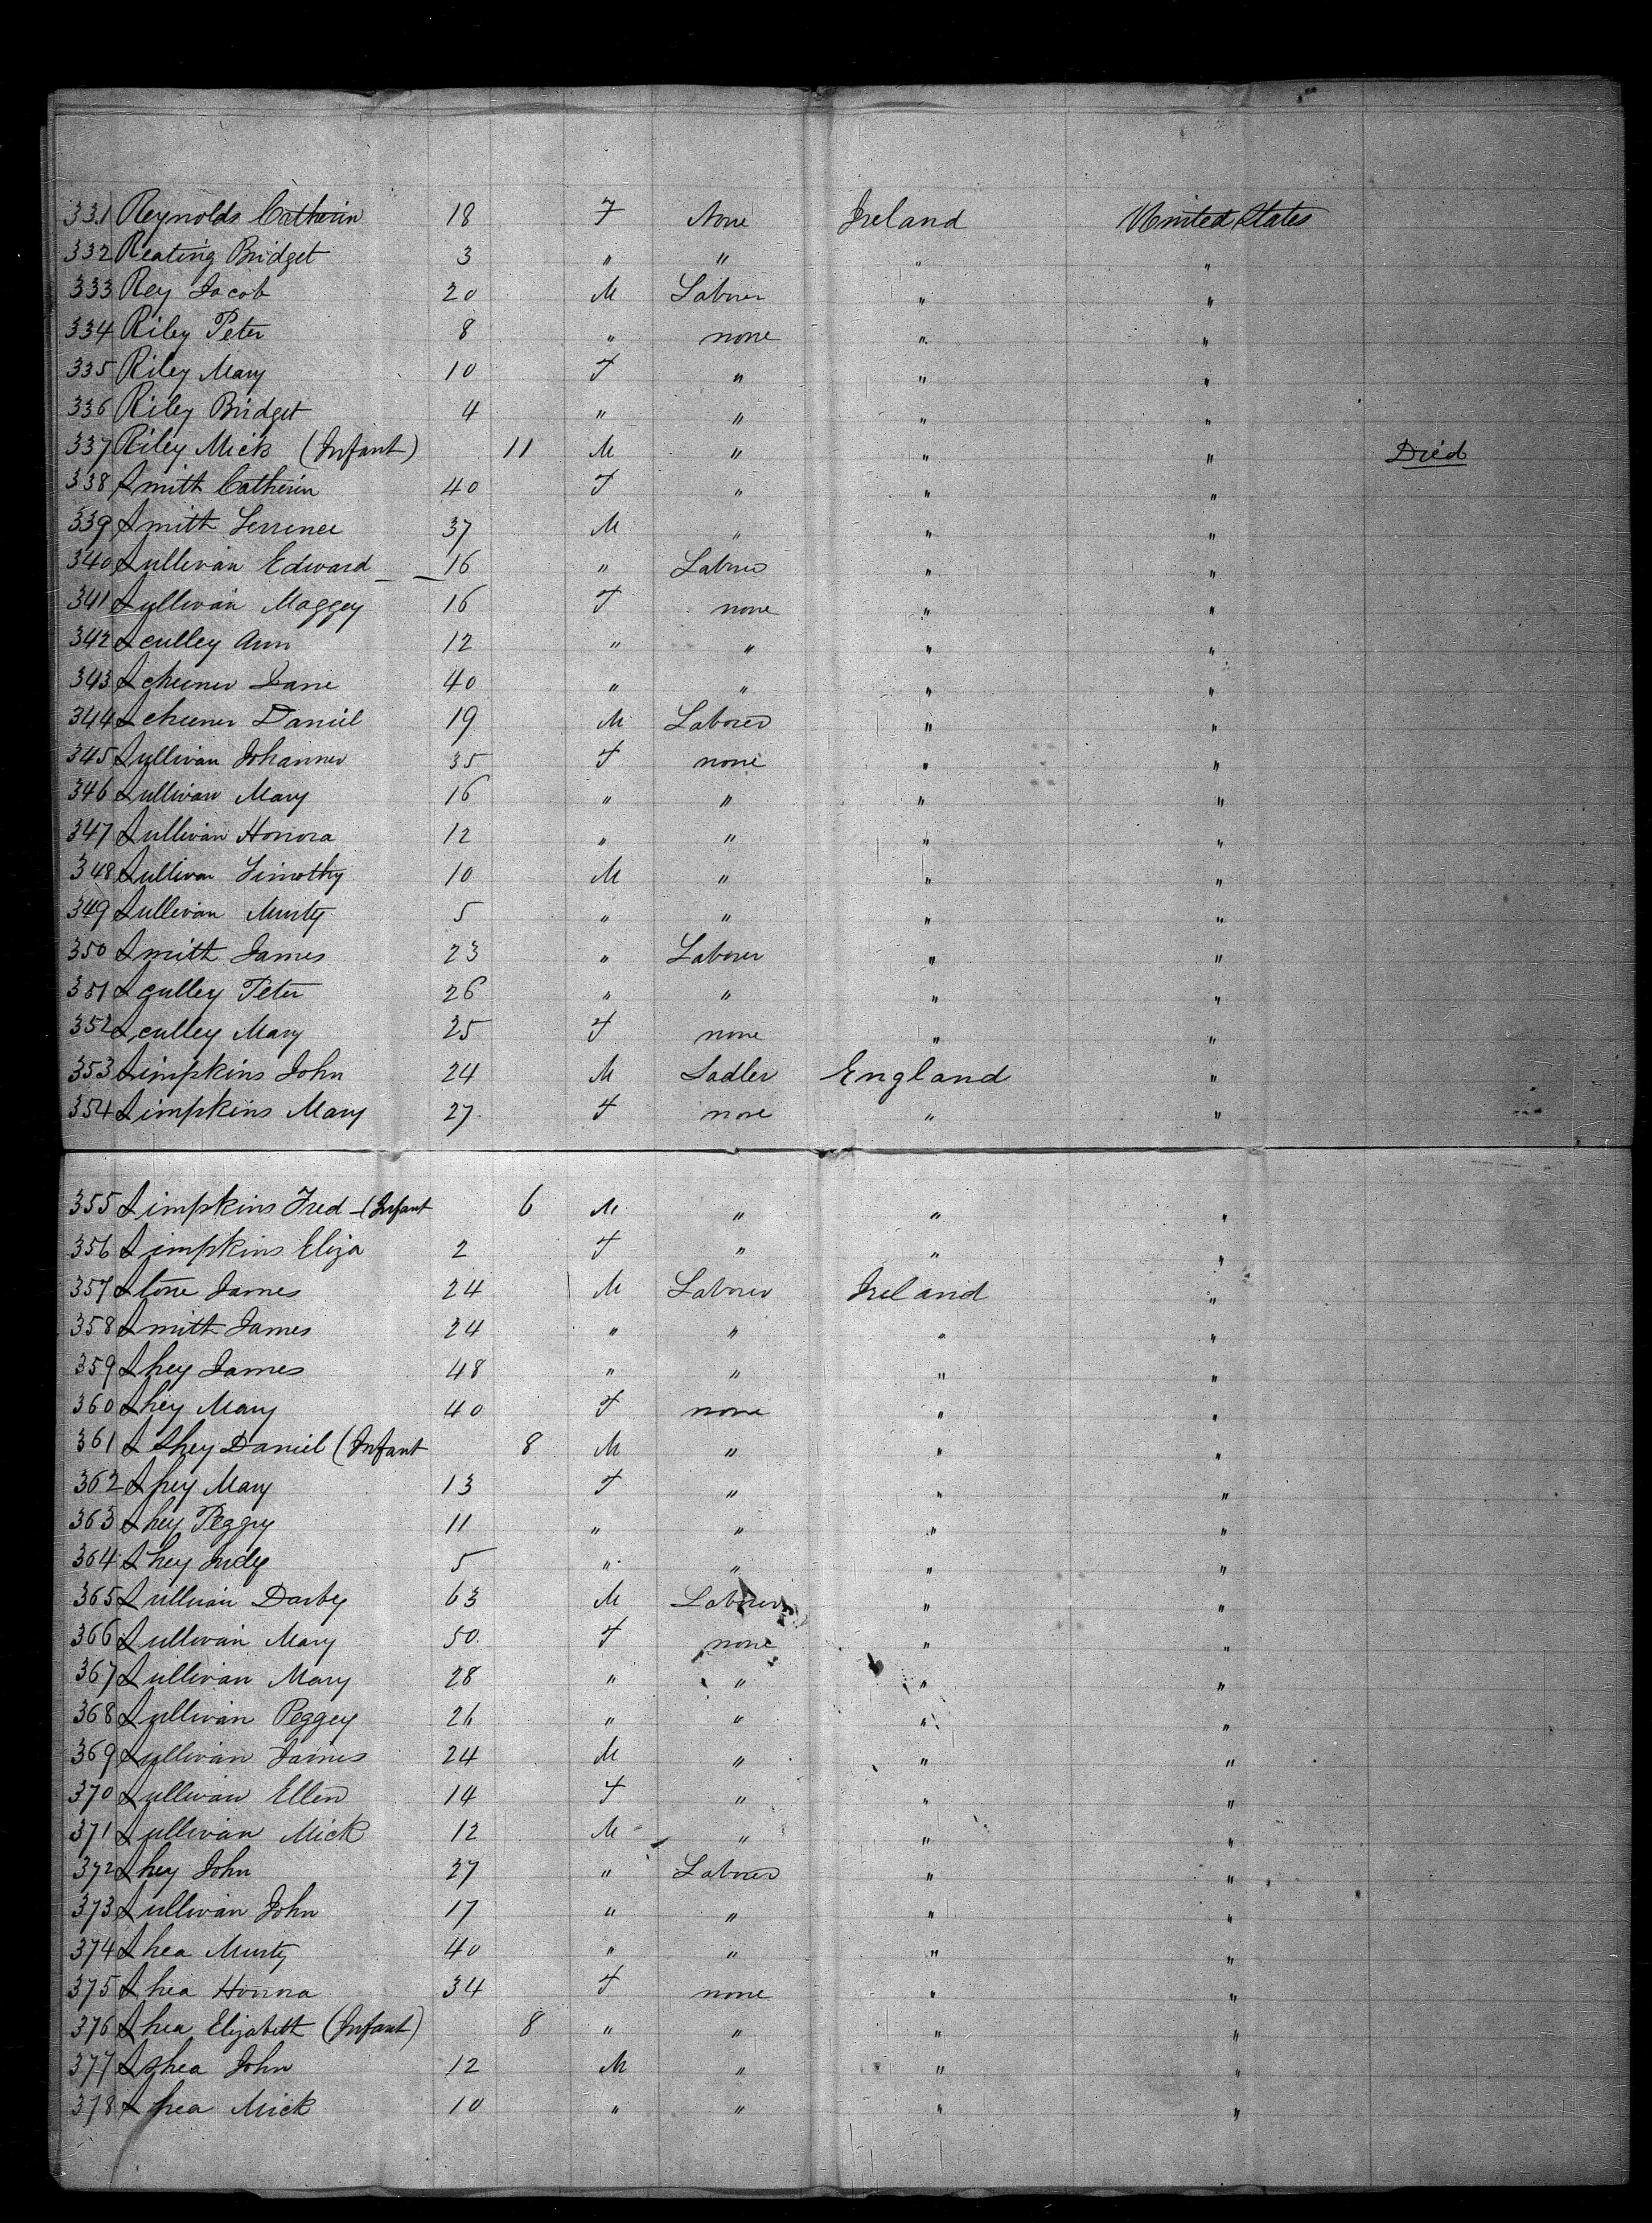 331 Reynolds Catherin 18 F None Ireland United States
332 Reating Bridget 3 " " " "
333 Rey Jacob 20 M Laborer " "
334 Riley Peter 8 " none " "
335 Riley Mary 10 F " " "
336 Riley Bridget 4 " " " "
337 Riley Mick (Infant) 11 M " " " Died
338 Smith Catherin 40 F " " "
339 Smith Terrence 37 M " " "
340 Sullivan Edward 16 " Laborer " "
341 Sullivan Maggey 16 F none " "
342 Sculley Ann 12 " " " "
343 Scheener Jane 40 " " " "
344 Scheener Daniel 19 M Laborer " "
345 Sullivan Johanner 35 F none " "
346 Sullivan Mary 16 " " " "
347 Sullivan Honora 12 " " " "
348 Sullivan Timothy 10 M " " "
349 Sullivan Murty 5 " " " "
350 Smith James 23 " Laborer " "
351 Sculley Peter 26 " " " "
352 Sculley Mary 25 F none " "
353 Simpkins John 24 M Sadler England "
354 Simpkins Mary 27 F none " "
355 Simpkins Fred - (Infant 6 M " " "
356 Simpkins Eliza 2 F " " "
357 Stone James 24 M Laborer Ireland "
358 Smith James 24 " " " "
359 Shey James 48 " " " "
360 Shey Mary 40 F none " "
361 S Shey Daniel (Infant 8 M " " "
362 Shey Mary 13 F " " "
363 Shey Peggy 11 " " " "
364 Shey Judy 5 " " " "
365 Sullivan Darby 63 M Laborer " "
366 Sullivan Mary 50 F none " "
367 Sullivan Mary 28 " " " "
368 Sullivan Peggey 26 " " " "
369 Sullivan James 24 M " " "
370 Sullivan Ellen 14 F " " "
371 Sullivan Mick 12 M " " "
372 Shey John 27 " Laborer " "
373 Sullivan John 17 " " " "
374 Shea Murty 40 " " " "
375 Shea Honora 34 F none " "
376 Shea Elizabeth (Infant) 8 " " " "
377 Sshea John 12 M " " "
378 Shea Mick 10 " " " "